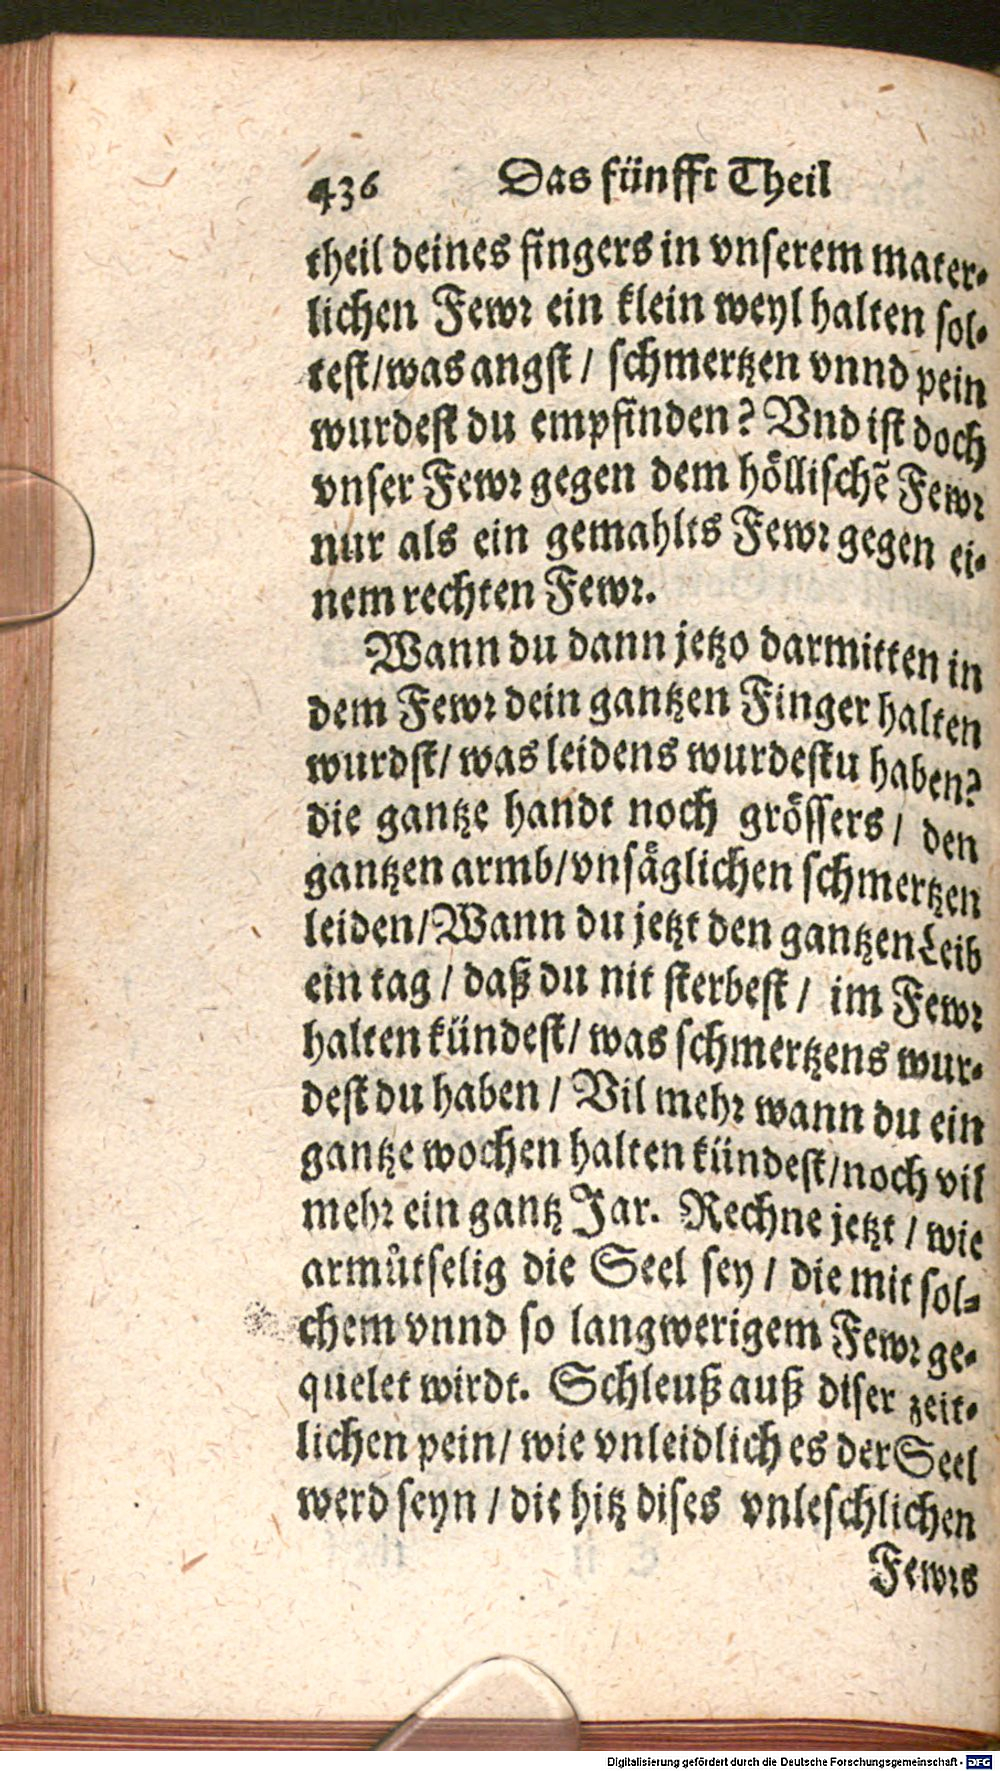 436 Das fünfft Theil
theil deines fingers in vnserem mater-
lichen Fewr ein klein weyl halten sol-
test/was angst / schmertzen vnnd pein
wurdest du empfinden? Vnd ist doch
vnser Fewr gegen dem höllischẽ Fewr
nur als ein gemahlts Fewr gegen ei-
nem rechten Fewr.
Wann du dann jetzo darmitten in
dem Fewr dein gantzen Finger halten
wurdst/ was leidens wurdestu haben?
die gantze handt noch grössers / den
gantzen armb/vnsäglichen schmertzen
leiden/Wann du jetzt den gantzen Leib
ein tag / daß du nit sterbest / im Fewr
halten kündest/ was schmertzens wur-
dest du haben / Vil mehr wann du ein
gantze wochen halten kündest/noch vil
mehr ein gantz Jar. Rechne jetzt / wie
armůtselig die Seel sey / die mit sol-
chem vnnd so langwerigem Fewr ge-
quelet wirdt. Schleuß auß diser zeit-
lichen pein/ wie vnleidlich es der Seel
werd seyn / die hitz dises vnleschlichen
Fewrs
Digitalisierung gefördert durch die Deutsche Forschungsgemeinschaft - DFG